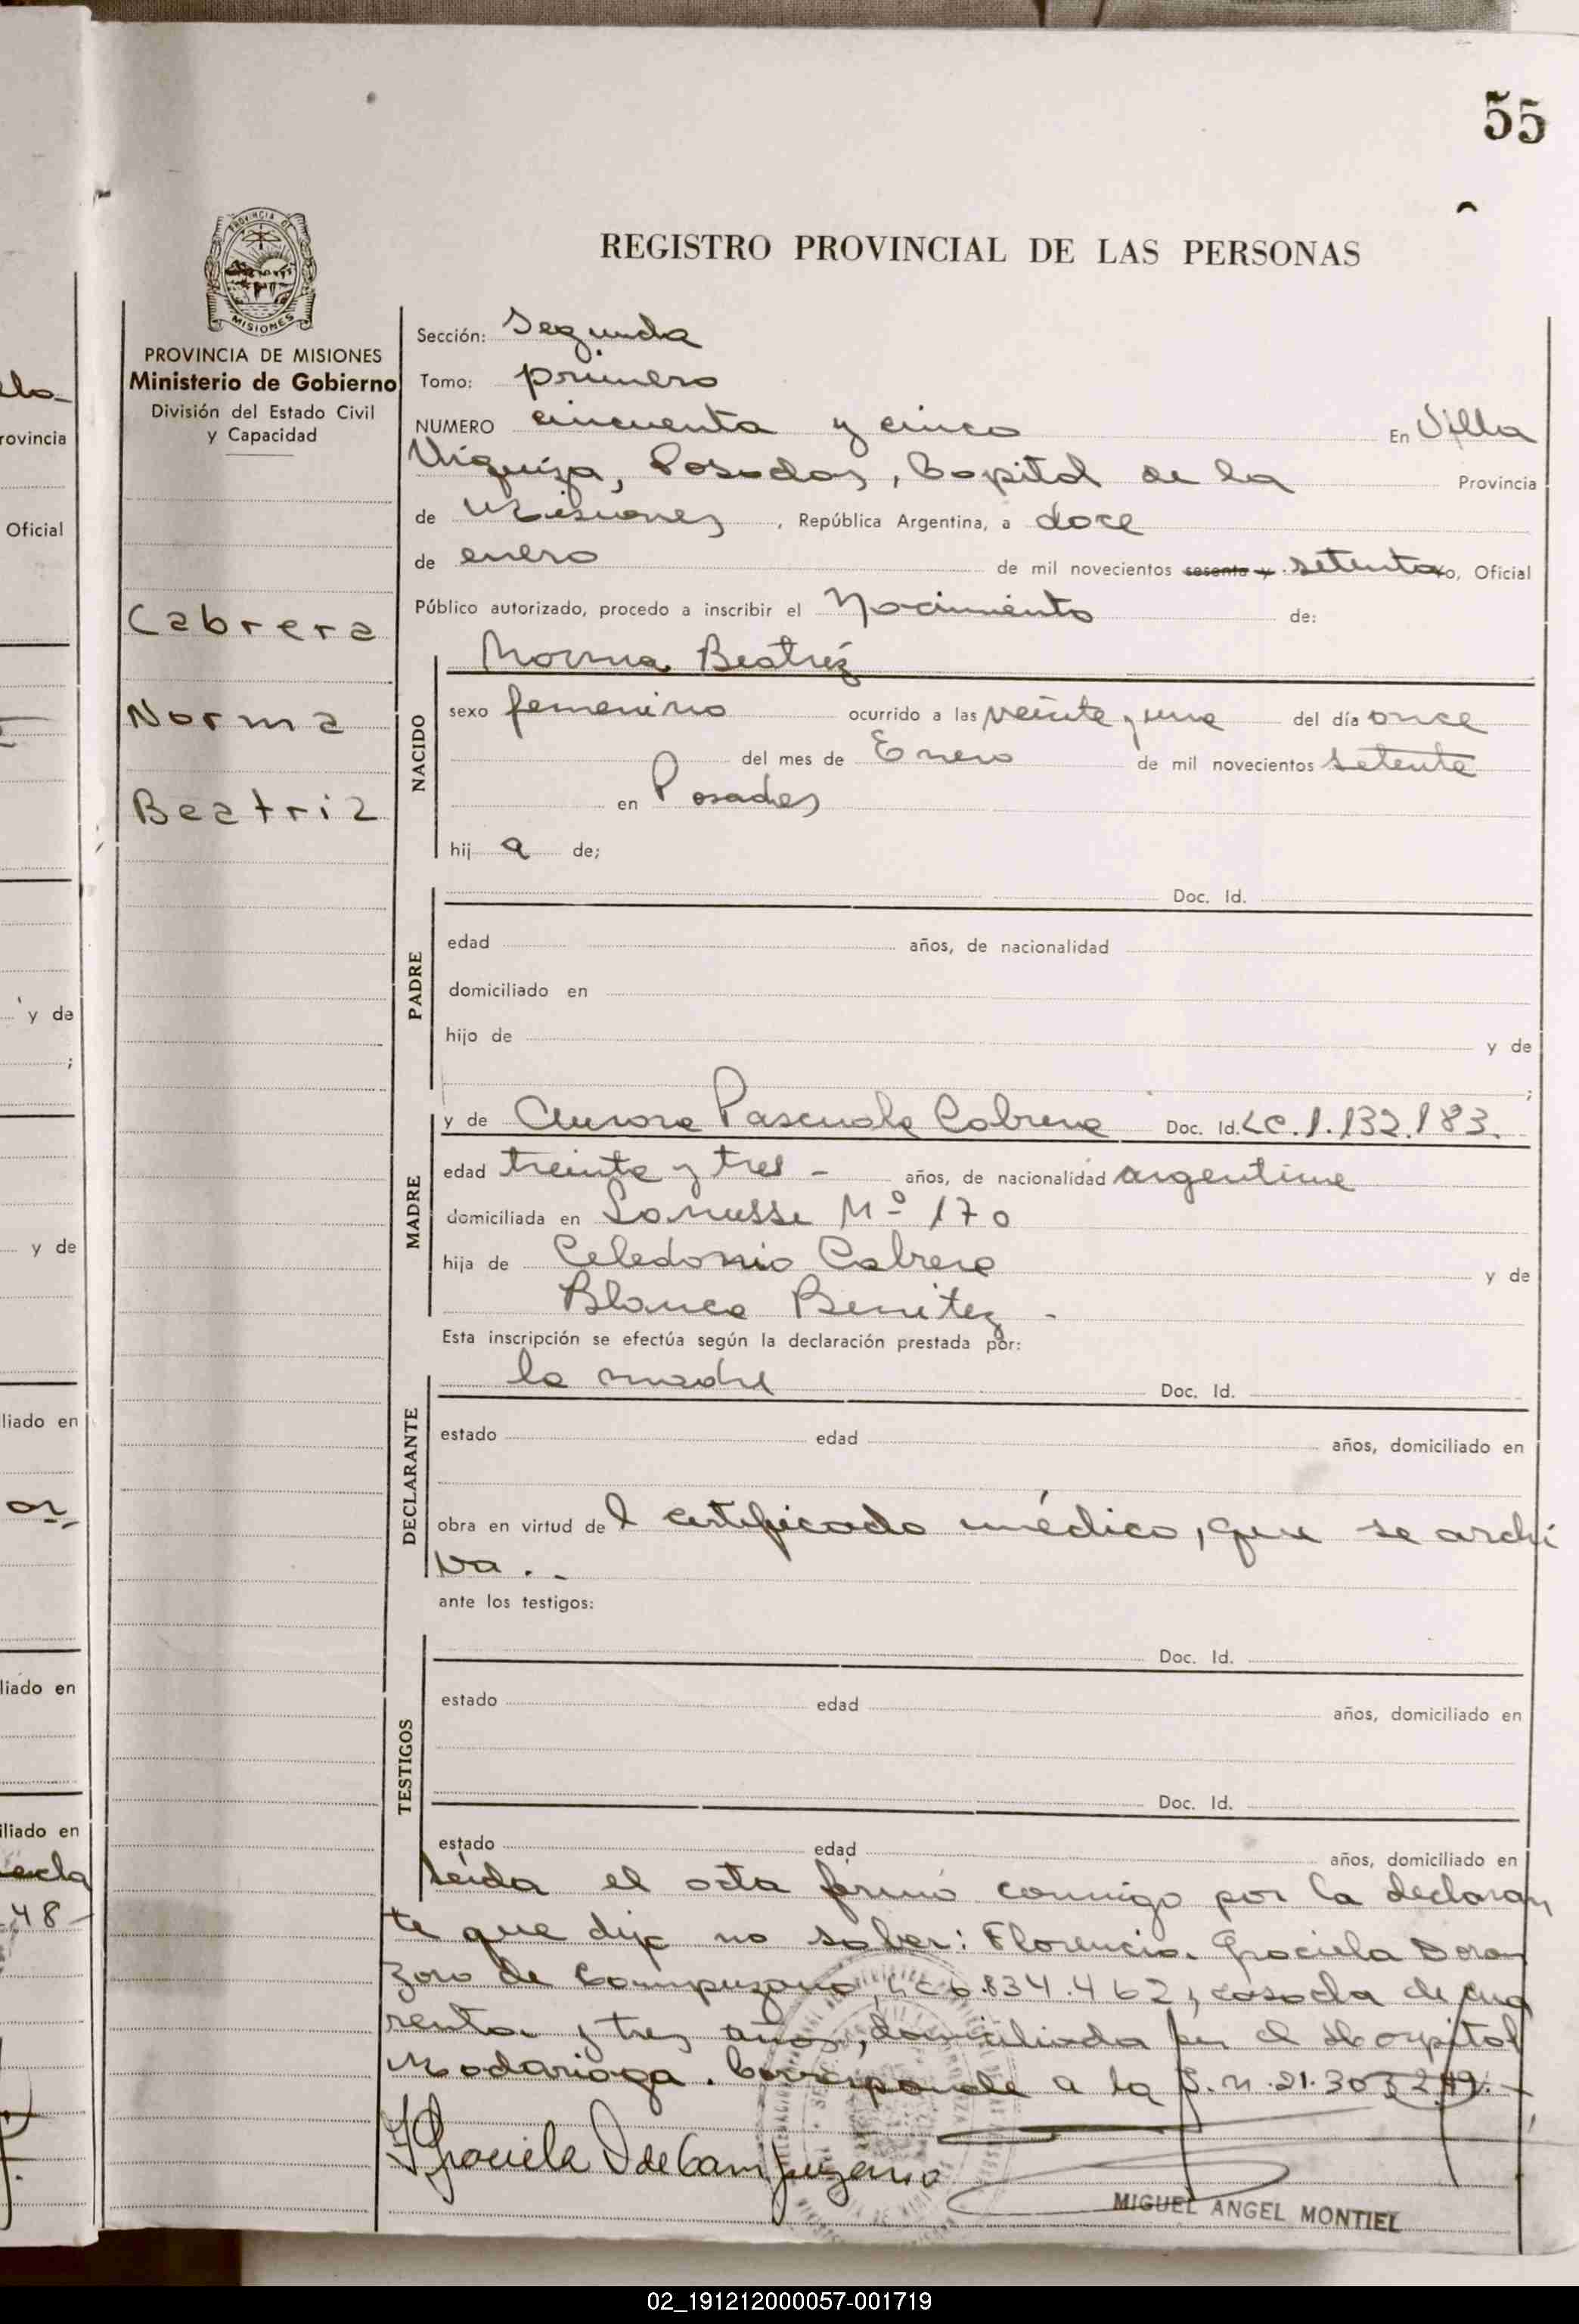 55
REGISTRO PROVINCIAL DE LAS PERSONAS
PROVINCIA DE
MISIONES
PROVINCIA DE MISIONES
Ministerio de Gobierno
División del Estado Civil
y Capacidad
Cabrera
Norma
Beatriz
Sección: Segunda
Tomo: primero
NUMERO cincuenta y cinco En Villa
Urquiza, Posadas, Capital de la Provincia
de Misiones, República Argentina, a doce
de enero de mil novecientos sesenta y setenta yo, Oficial
Público autorizado, procedo a inscribir el Nacimiento de:
NACIDO
Norma Beatríz
sexo femenino ocurrido a las veinte y una del día once
del mes de Enero de mil novecientos setenta
en Posadas
hij a de;
PADRE
Doc. Id.
edad años, de nacionalidad
domiciliado en
hijo de y de
;
MADRE
y de Aurora Pascuala Cabrera Doc. Id. LC.1.132.183.
edad treinta y tres - años, de nacionalidad argentina
domiciliada en Lanusse Nº 170
hija de Celedonio Cabrera y de
Blanca Benitez -
Esta inscripción se efectúa según la declaración prestada por:
DECLARANTE
la madre Doc. Id.
estado edad años, domiciliado en
obra en virtud del certificado médico, que se archi
va . -
ante los testigos:
TESTIGOS
Doc. Id.
estado edad años, domiciliado en
Doc. Id.
estado edad años, domiciliado en
Leída el acta firmó conmigo por la declaran
te que dijo no saber: Florencia Graciela
de Campuzano, 834.462, casada de cua
renta y tres años, domiciliada en el Hospital
Madariaga. Corresponde a la
Graciela D de Campuzano
MIGUEL ANGEL MONTIEL
rovincia
Oficial
y de
;
y de
liado en
liado en
iliado en
48
02_191212000057-001719